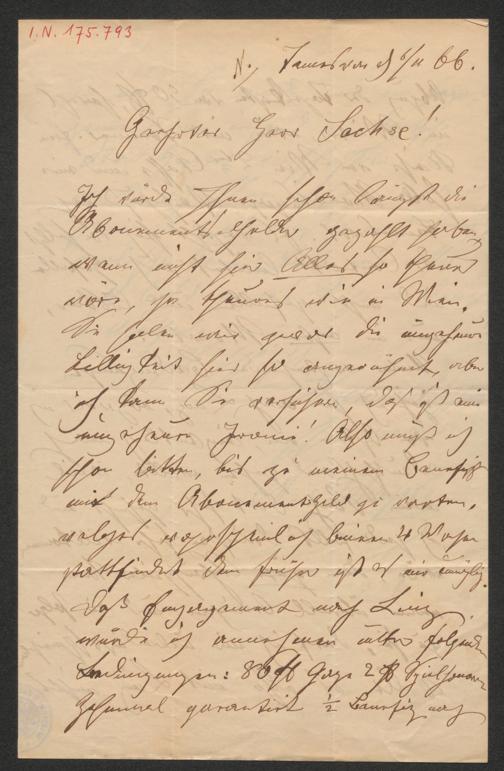 I.N. 175.793
Temesvar d 6/11 66.
Geehrter Herr Sachse!
Ich würde Ihnen schon längst die
Abonements Gelder gezahlt haben,
wenn nicht hier Alles so theuer
wäre, so theuer wie in Wien.
Sie haben mir zwar die ungeheure
Billigkeit hier so angerühmt, aber
ich kann Sie versichern, das ist eine
ungeheure Ironie! Also muß ich
schon bitten, bis zu meinem Benefize
mit dem Abonementgeld zu warten,
welches wahrscheinlich binnen 4 Wochen
stattfindet denn früher ist es mir unmöglich.
Daß Engagement nach Linz
würde ich annehmen unter folgenden
Bedingungen: 80 fl Gage 2 fl Spielhonorar
zehnmal garantirt ½ Benefiz nach